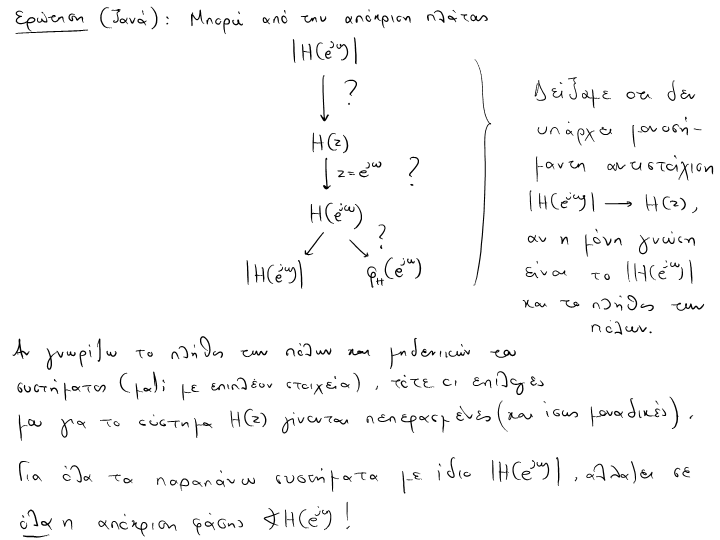 Ερώτηση (Ξανά): Μπορώ από την απόκριση πλάτος
|H(e^{jω})|
?
H(z)
z=e^{jω} ?
H(e^{jω})
?
|H(e^{jω})| φ_H(e^{jω})
Δείξαμε οτι δεν
υπάρχει μονοσή-
μαντη αντιστοίχιση
|H(e^{jω})| → H(z),
αν η μόνη γνώση
είναι το |H(e^{jω})|
και το πλήθος των
πόλων.
Αν γνωρίζω το πλήθος των πόλων και μηδενικών του
συστήματος (μαζί με επιπλέον στοιχεία), τότε οι επιλογές
μου για το σύστημα H(z) γίνονται πεπερασμένες (και ίσως μοναδικές).
Για όλα τα παραπάνω συστήματα με ίδιο |H(e^{jω})|, αλλάζει σε
όλα η απόκριση φάσης ∢H(e^{jω})!